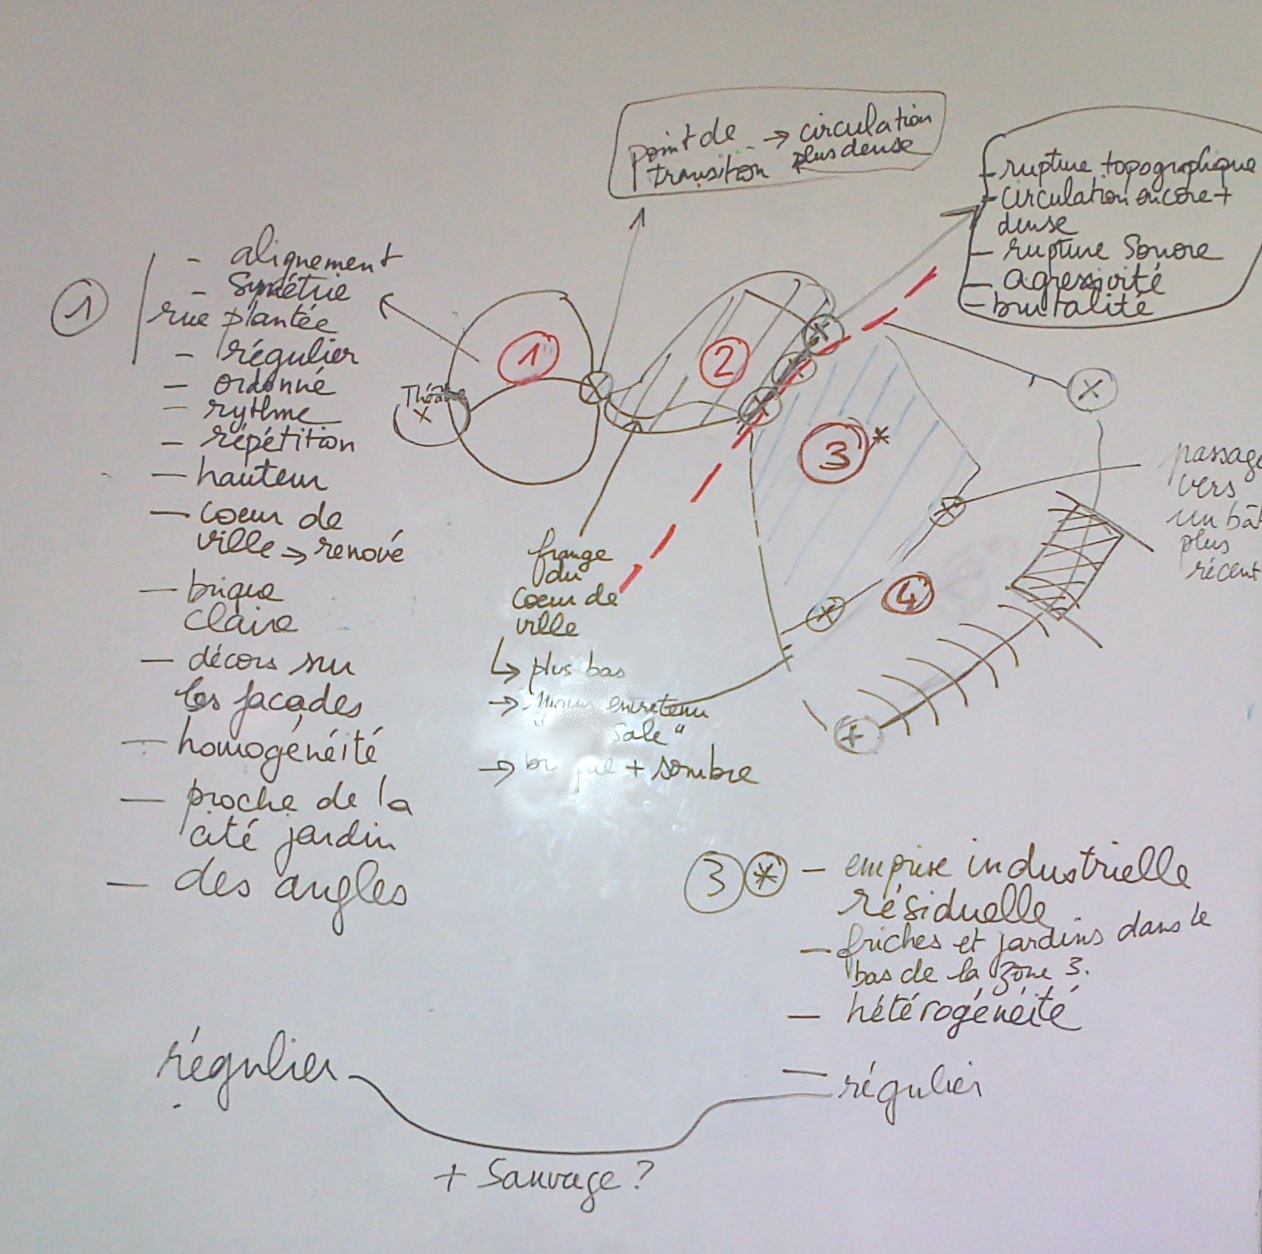 point de → circulation
transition plus dense
- rupture topographique
- circulation encore +
dense
- rupture sonore
- agressivité
- brutalité
1
- alignement
- symétrie
rue plantée
- régulier
- ordonné
- rythme
- répétition
- hauteur
- coeur de
ville → renové
- brique
claire
- décors sur
les façades
- homogénéité
- proche de la
cité jardin
- des angles
1
2
3*
4
frange
du
coeur de
ville
↳ plus bas
→ entretenu
"sale"
→ + sombre
passage
vers
un bât
plus
récent
3 * - emprise industrielle
résiduelle
- friches et jardins dans le
bas de la zone 3.
- hétérogénéité
- régulier
régulier
+ sauvage ?